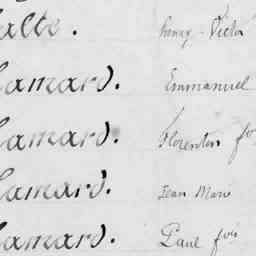 Henry - Victor
Lamard. Emmanuel
Lamard. Florentin fois
Lamard. Jean Marie
Lamard. Paul fois